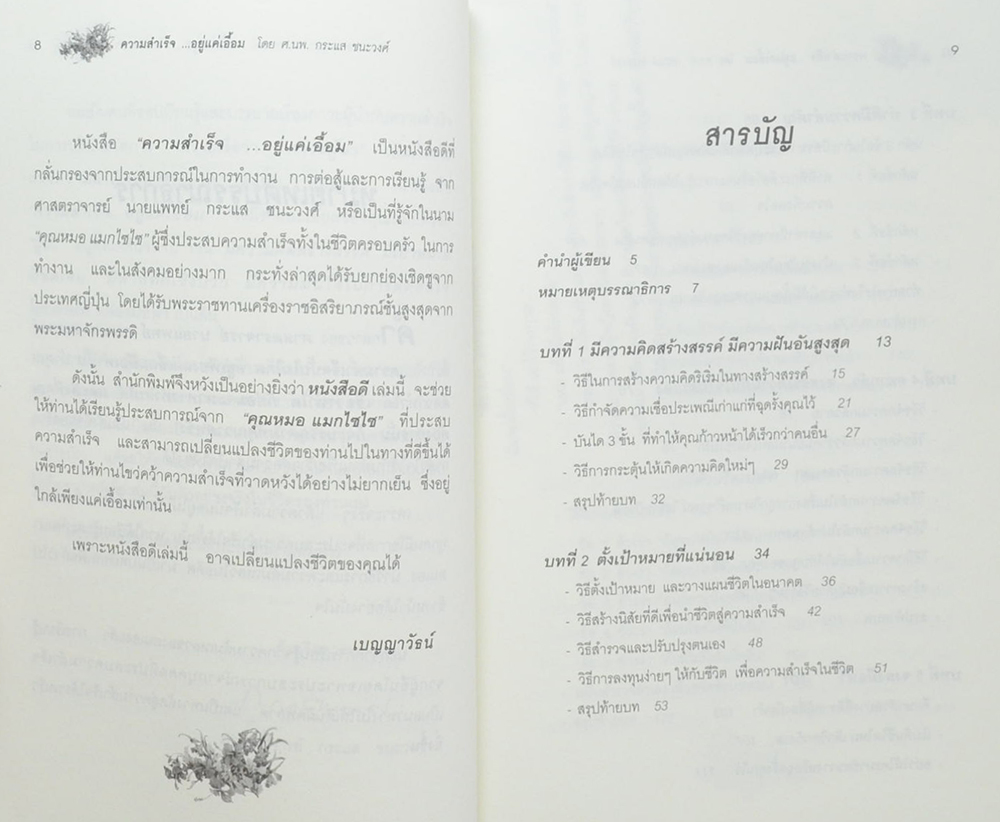 8 ความสำเร็จ ...อยู่แค่เอื้อม โดย ศ.นพ. กระแส ชนะวงศ์
หนังสือ “ความสำเร็จ ...อยู่แค่เอื้อม” เป็นหนังสือดีที่
กลั่นกรองจากประสบการณ์ในการทำงาน การต่อสู้และการเรียนรู้ จาก
ศาสตราจารย์ นายแพทย์ กระแส ชนะวงศ์ หรือเป็นที่รู้จักในนาม
“คุณหมอ แมกไซไซ” ผู้ซึ่งประสบความสำเร็จทั้งในชีวิตครอบครัว ในการ
ทำงาน และในสังคมอย่างมาก กระทั่งล่าสุดได้รับยกย่องเชิดชูจาก
ประเทศญี่ปุ่น โดยได้รับพระราชทานเครื่องราชอิสริยาภรณ์ชั้นสูงสุดจาก
พระมหาจักรพรรดิ
ดังนั้น สำนักพิมพ์จึงหวังเป็นอย่างยิ่งว่า หนังสือดี เล่มนี้ จะช่วย
ให้ท่านได้เรียนรู้ประสบการณ์จาก “คุณหมอ แมกไซไซ” ที่ประสบ
ความสำเร็จ และสามารถเปลี่ยนแปลงชีวิตของท่านไปในทางที่ดีขึ้นได้
เพื่อช่วยให้ท่านไขว่คว้าความสำเร็จที่วาดหวังได้อย่างไม่ยากเย็น ซึ่งอยู่
ใกล้เพียงแค่เอื้อมเท่านั้น
เพราะหนังสือดีเล่มนี้ อาจเปลี่ยนแปลงชีวิตของคุณได้
เบญญาวัธน์
9
สารบัญ
คำนำผู้เขียน 5
หมายเหตุบรรณาธิการ 7
บทที่ 1 มีความคิดสร้างสรรค์ มีความฝันอันสูงสุด 13
- วิธีในการสร้างความคิดริเริ่มในทางสร้างสรรค์ 15
- วิธีกำจัดความเชื่อประเพณีเก่าแก่ที่ฉุดรั้งคุณไว้ 21
- บันได 3 ขั้น ที่ทำให้คุณก้าวหน้าได้เร็วกว่าคนอื่น 27
- วิธีการกระตุ้นให้เกิดความคิดใหม่ๆ 29
- สรุปท้ายบท 32
บทที่ 2 ตั้งเป้าหมายที่แน่นอน 34
- วิธีตั้งเป้าหมาย และวางแผนชีวิตในอนาคต 36
- วิธีสร้างนิสัยที่ดีเพื่อนำชีวิตสู่ความสำเร็จ 42
- วิธีสำรวจและปรับปรุงตนเอง 48
- วิธีการลงทุนง่ายๆ ให้กับชีวิต เพื่อความสำเร็จในชีวิต 51
- สรุปท้ายบท 53